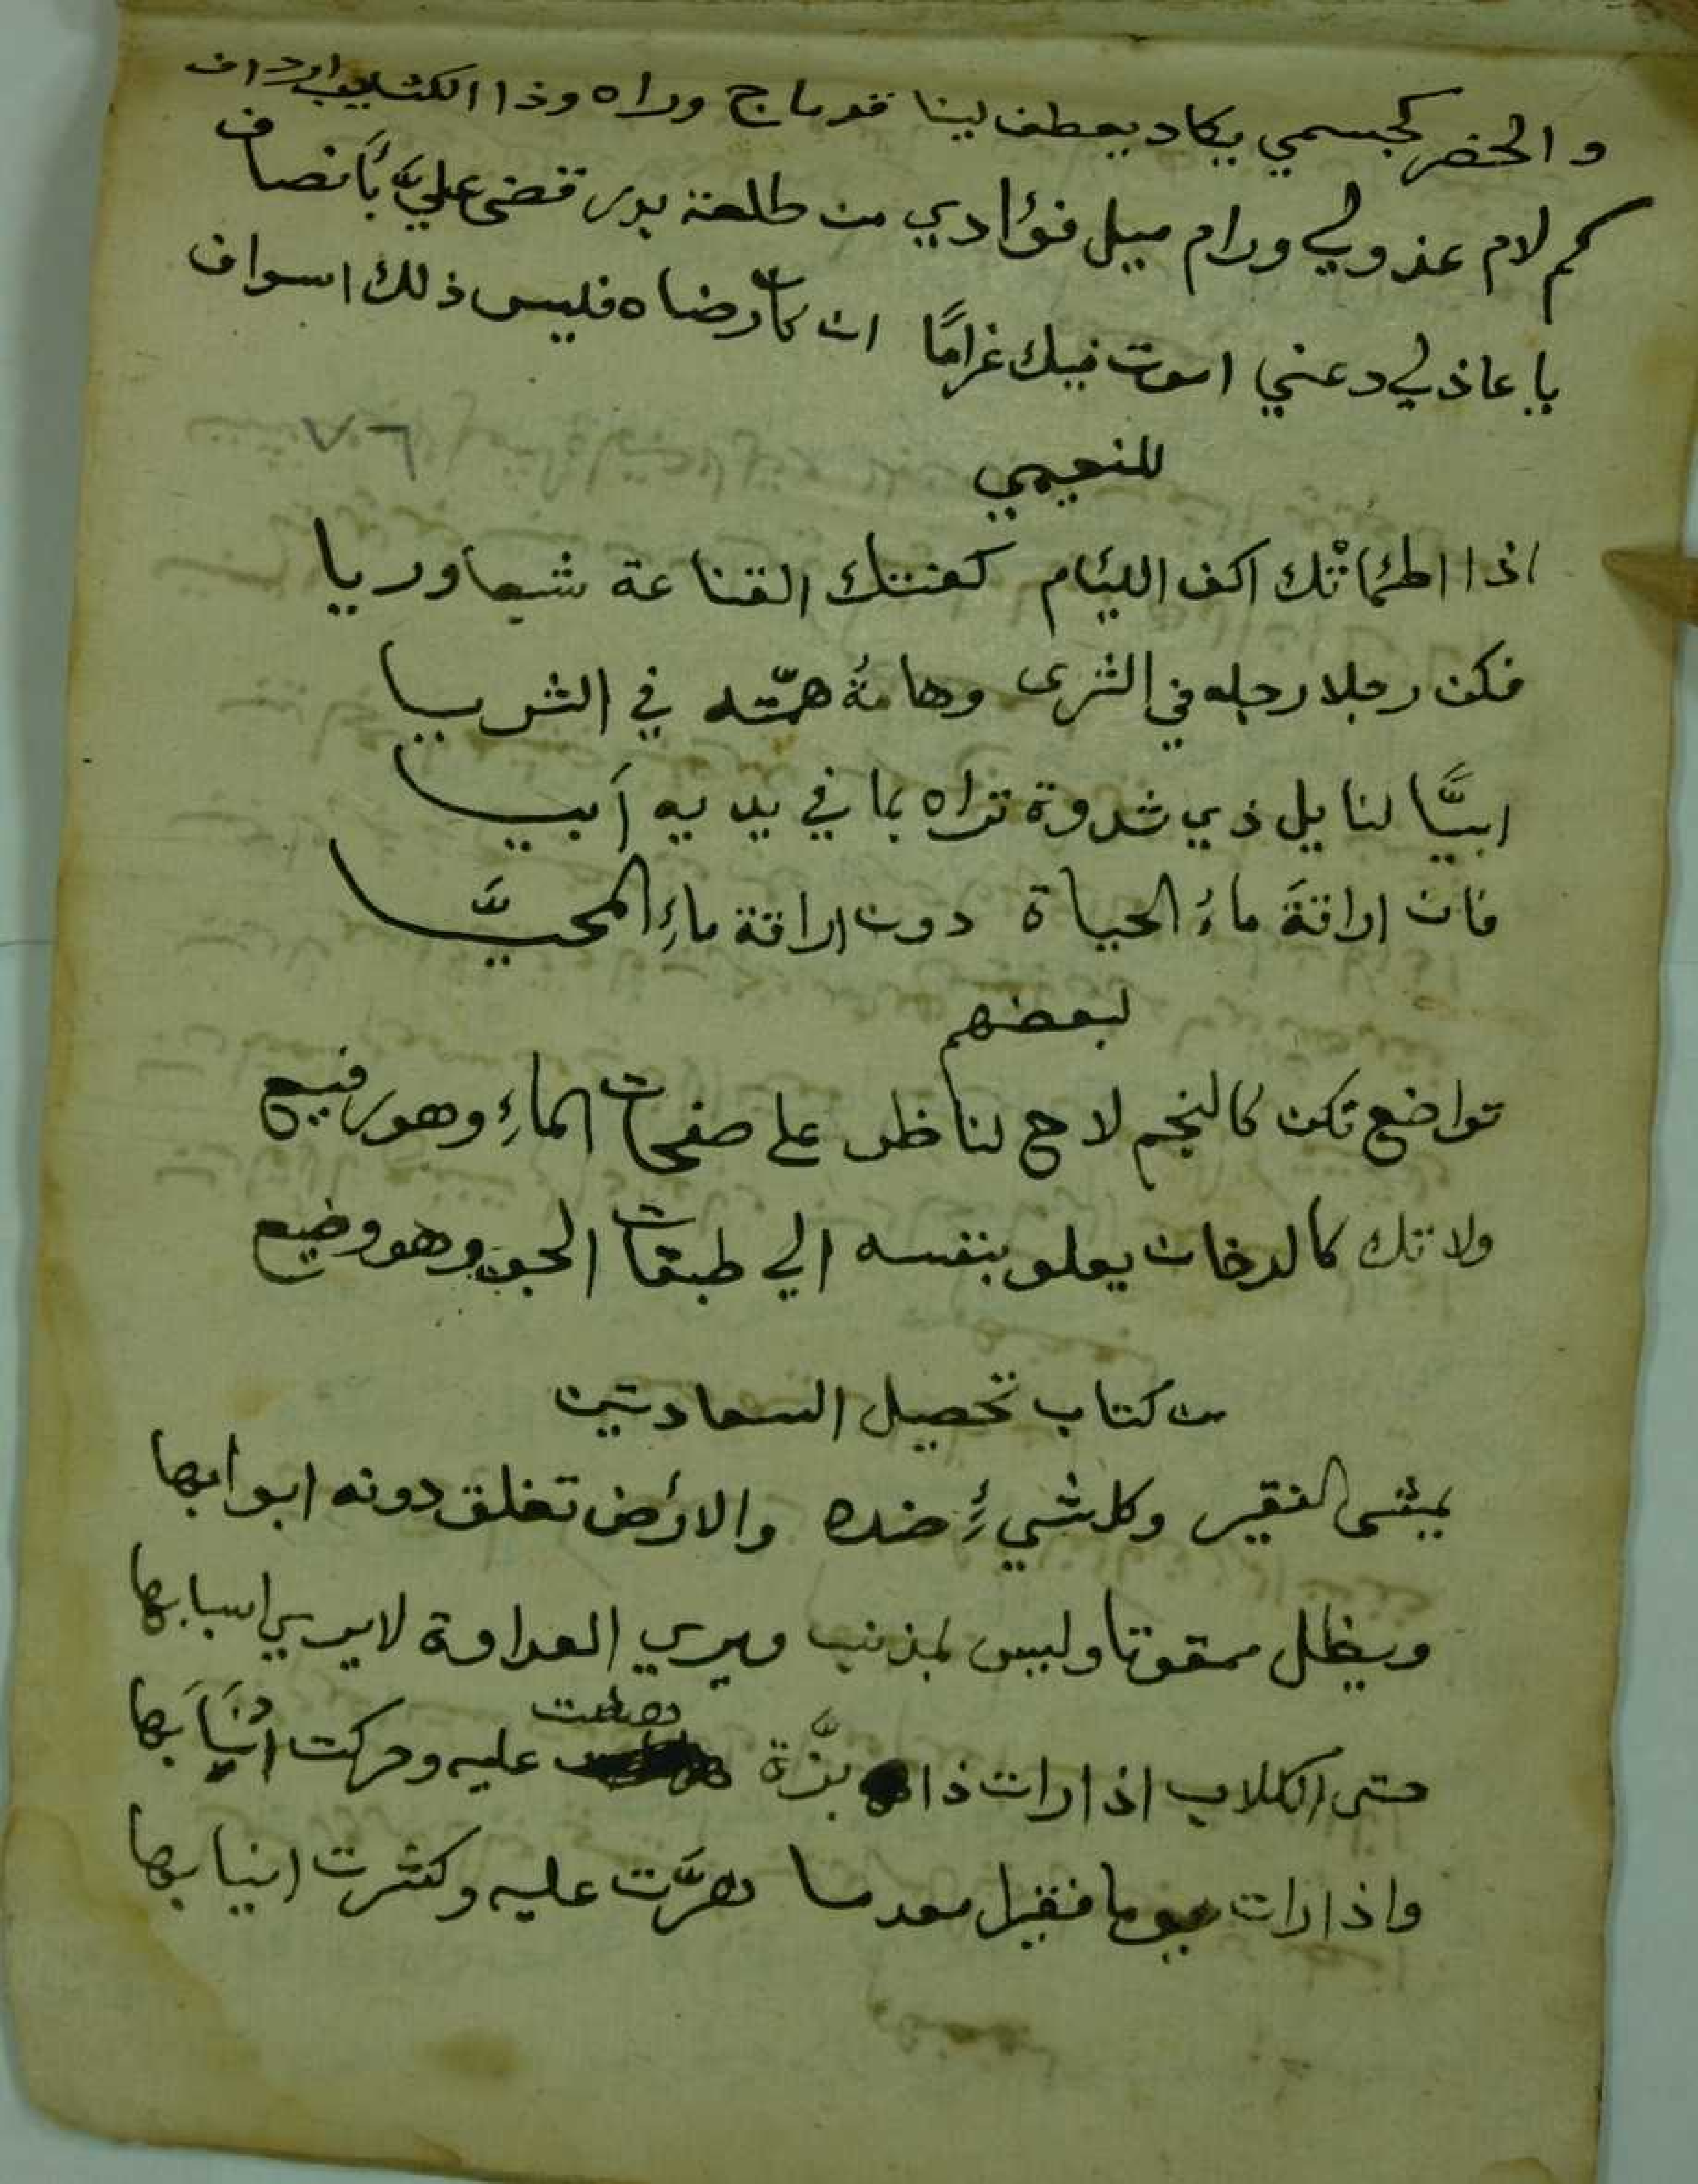 والخصر كجسمي يكاد يعطف لينا قد ماج وراه وذا الكثيب ارداف
كم لام عذولي ورام ميل فؤادي من طلعة بدر قضى عليَّ بأنصاف
يا عاذلي دعني اموت فيك غرامًا ان كان رضاه فليس ذلك اسراف
٧٦
للنعيمي
اذا اظمئاتْك اكف الليئام كفتتك القناعة شبعا وريا
فكن رجلا رجله في الثرى وهامةُ همّته في الثريا
ابيًّا لنايل ذي ثروة تراه بما في يديه أبيا
فان اراقةَ ماءُ الحياة دون اراقة ماءِ المحيَّا
لبعضهم
تواضع تكن كالنجم لاح لناظر على صفحات الماءِ وهو رفيع
ولا تك كالدخان يعلو بنفسه الي طبقات الجو وهو وضيع
من كتاب تحصيل السعادتين
يمشى الفقير وكل شيءٍ ضده والارض تغلق دونه ابوابها
ويظل ممقوتا وليس بمذنب ويري العداوة لا يري اسبابها
حتى الكلاب اذا رات ذا بزَّة عليه وحركت اذنَابَها
واذا رات يوما فقيرا معدما هرَّت عليه وكشرت انيابها